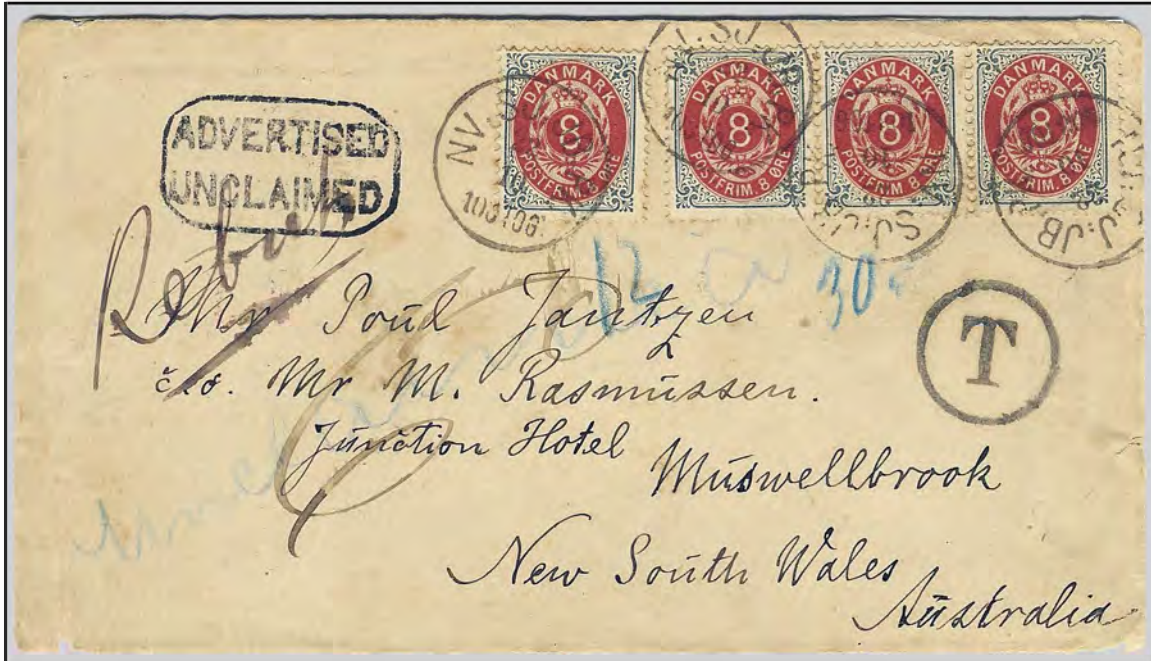 DANMARK 8 POSTFRIM. 8 ØRE
DANMARK 8 POSTFRIM. 8 ØRE
DANMARK 8 POSTFRIM. 8 ØRE
DANMARK 8 POSTFRIM. 8 ØRE
ADVERTISED
UNCLAIMED
12
30
T
Mr Poul Jantzen
c/o. Mr M. Rasmussen.
Junction Hotel
Muswellbrook
New South Wales
Australia